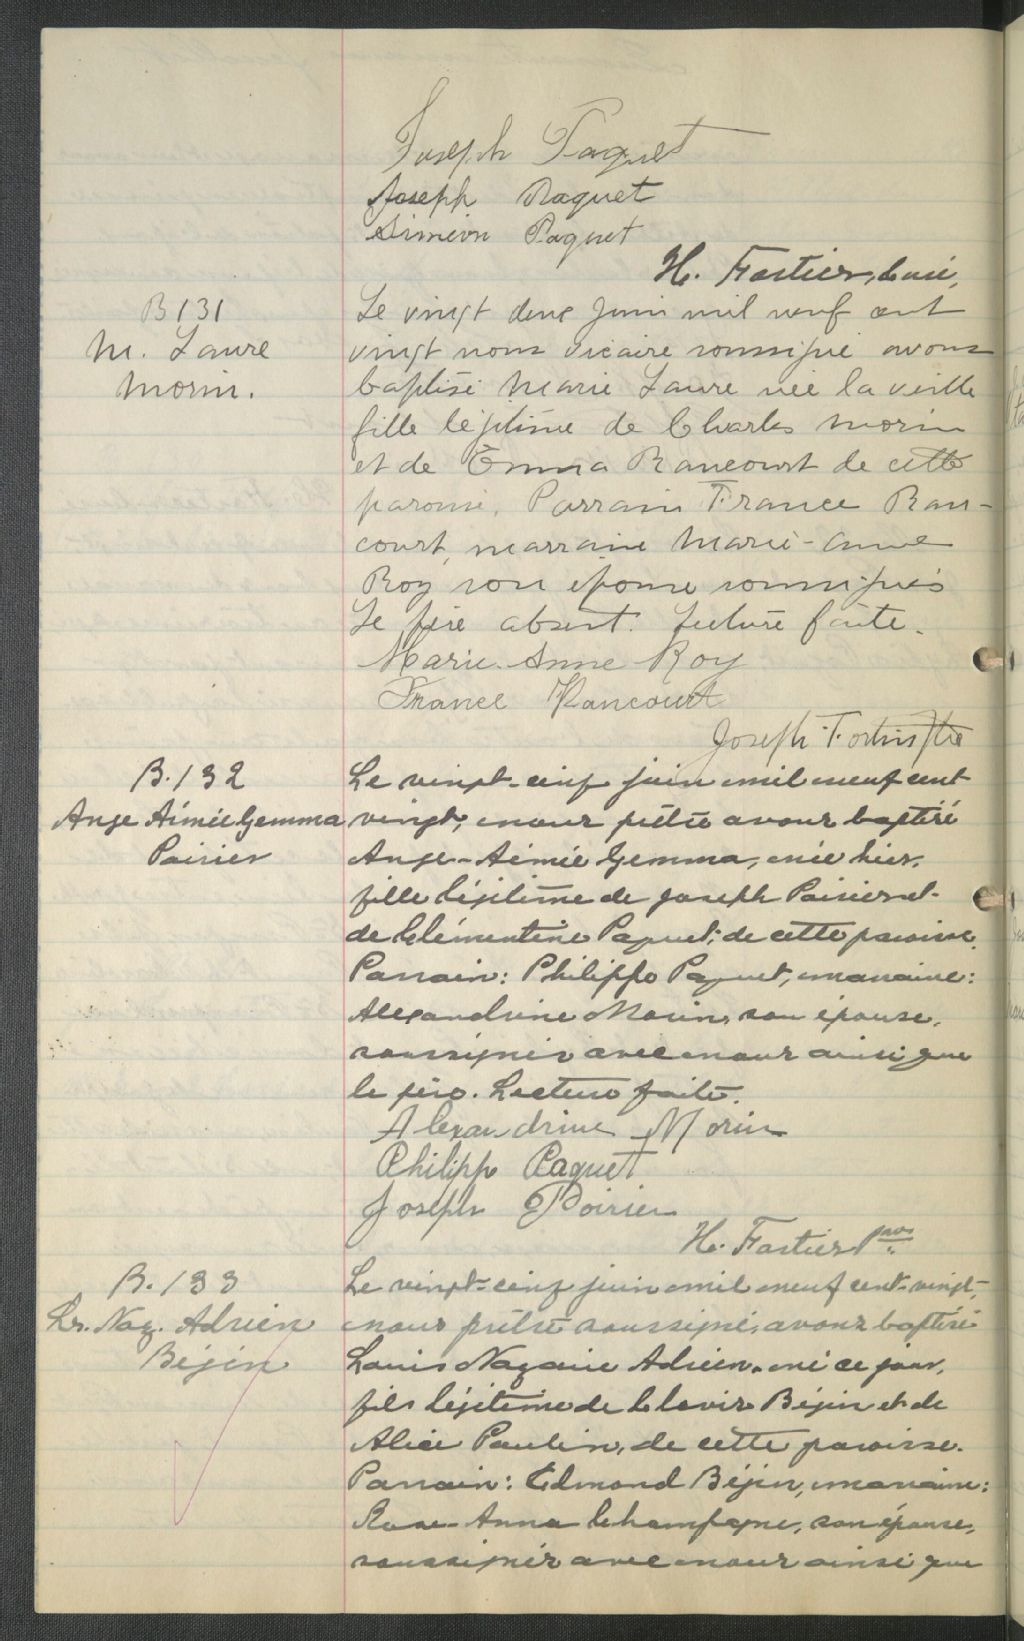 Joseph Paquet
Joseph Paquet
Siméon Paquet
H. Fortier, curé,
B 131
M. Laure
Morin.
Le vingt deux Juin mil neuf cent
vingt nous vicaire soussigné avons
baptisé Marie Laure née la veille
fille légitime de Charles Morin
et de Emma Rancourt de cette
paroisse. Parrain France Ran-
court, marraine Marie-Anne
Roy son épouse soussignés
Le père absent. Lecture faite.
Marie-Anne Roy
France Rancourt
Joseph Fortin Ptre
B. 132
Ange Aimée Gemma
Poirier
Le vingt-cinq juin mil neuf cent
vingt, nous prêtre avons baptisé
Ange-Aimée Gemma, née hier,
fille légitime de Joseph Poirier et
de Clémentine Paquet, de cette paroisse.
Parrain: Philippe Paquet, marraine:
Alexandrine Morin, son épouse,
soussignés avec nous ainsi que
le père. Lecture faite.
Alexandrine Morin
Philipp Paquet
Joseph Poirier
H. Fortier
B. 133
Ls. Naz. Adrien
Bégin
Le vingt-cinq juin mil neuf cent-vingt,
nous prêtre soussigné, avons baptisé
Louis Nazaire Adrien, né ce jour,
fils légitime de Clovis Bégin et de
Alice Poulin, de cette paroisse.
Parrain: Edmond Bégin, marraine:
Rose-Anna Champagne, son épouse,
soussignés avec nous ainsi que